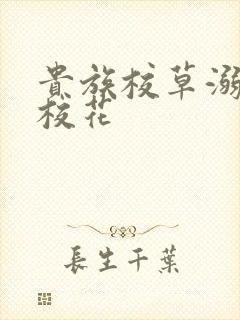 貴族校草溺
校花
長生千葉